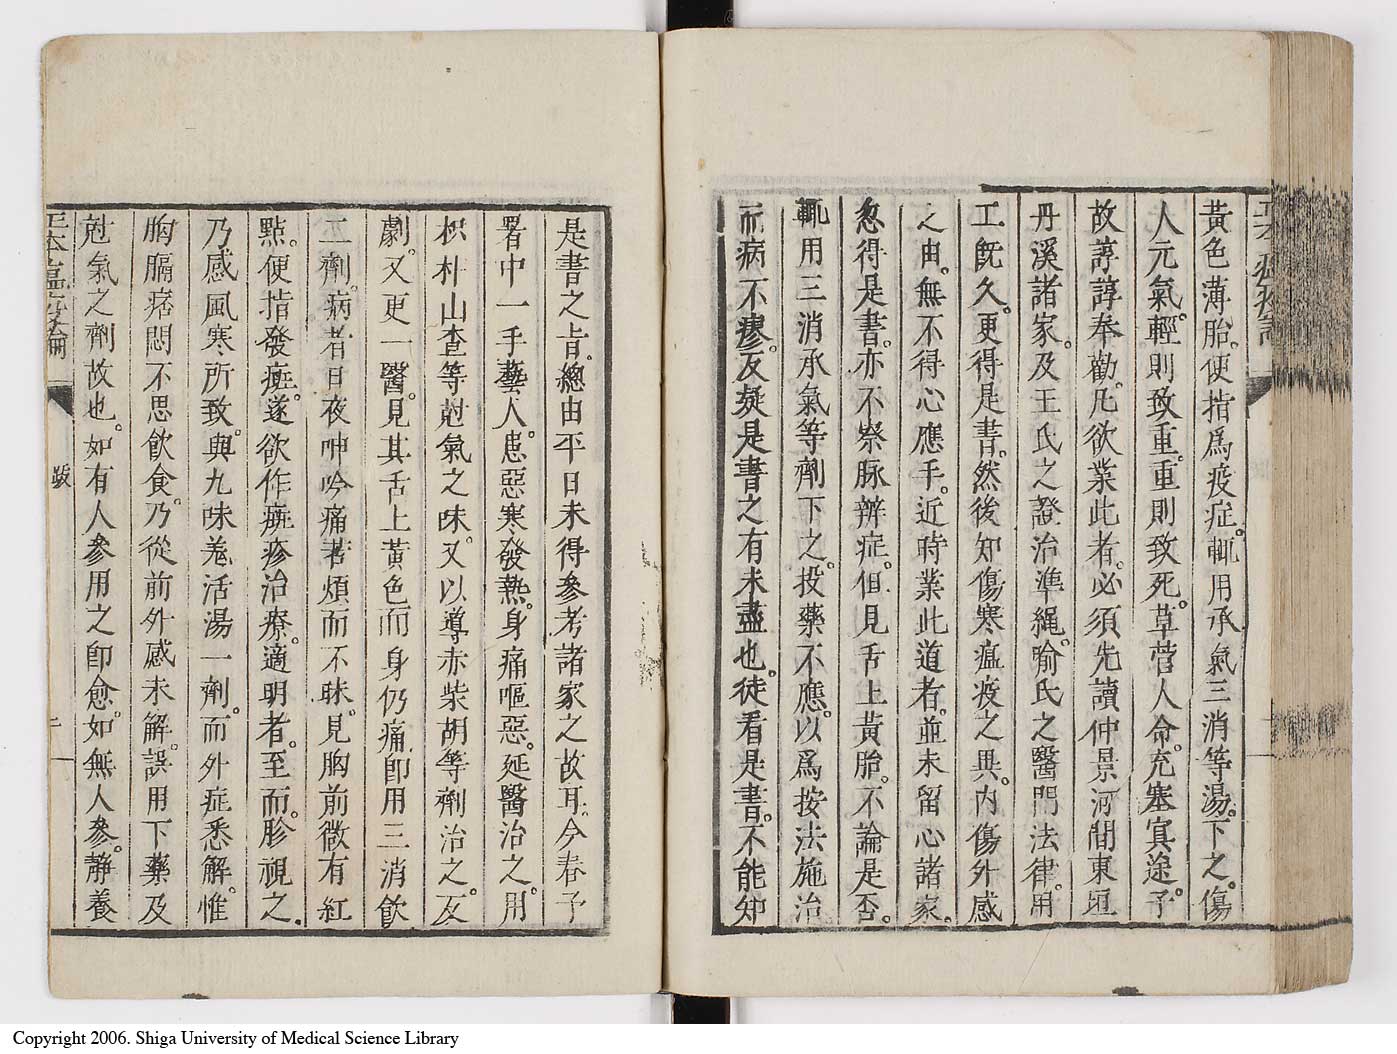 黃色薄胎。便指爲疫症。輒用承氣三消等湯。下之。傷
人元氣。輕則致重。重則致死。草菅人命。充塞冥途。予
故諄諄奉勸。凡欲業此者。必須先讀仲景河間東垣
丹溪諸家。及王氏之證治準繩。喻氏之醫門法律。用
工旣久。更得是書。然後知傷寒瘟疫之異。內傷外感
之由。無不得心應手。近時業此道者。並未留心諸家。
忽得是書。亦不察脉辨症。但見舌上黃胎。不論是否。
輒用三消承氣等劑下之。投藥不應。以爲按法施治
而病不瘳。反疑是書之有未盡也。徒看是書。不能知
是書之旨。總由平日未得參考諸家之故耳。今春予
署中一手藝人。患惡寒發熱。身痛嘔惡。延醫治之。用
枳朴山查等尅氣之味。又以導赤柴胡等劑治之。反
劇。又更一醫。見其舌上黃色而身仍痛。卽用三消飲
二劑。病者日夜呻吟痛若煩而不眛。見胸前微有紅
點。便指發斑。遂欲作斑疹治療。適明者。至而。胗視之。
乃感風寒所致。與九味羗活湯一劑。而外症悉解。惟
胸膈痞悶不思飲食。乃從前外感未解。誤用下藥及
尅氣之劑故也。如有人參用之卽愈。如無人參。靜養
正本瘟疫論
跋
二